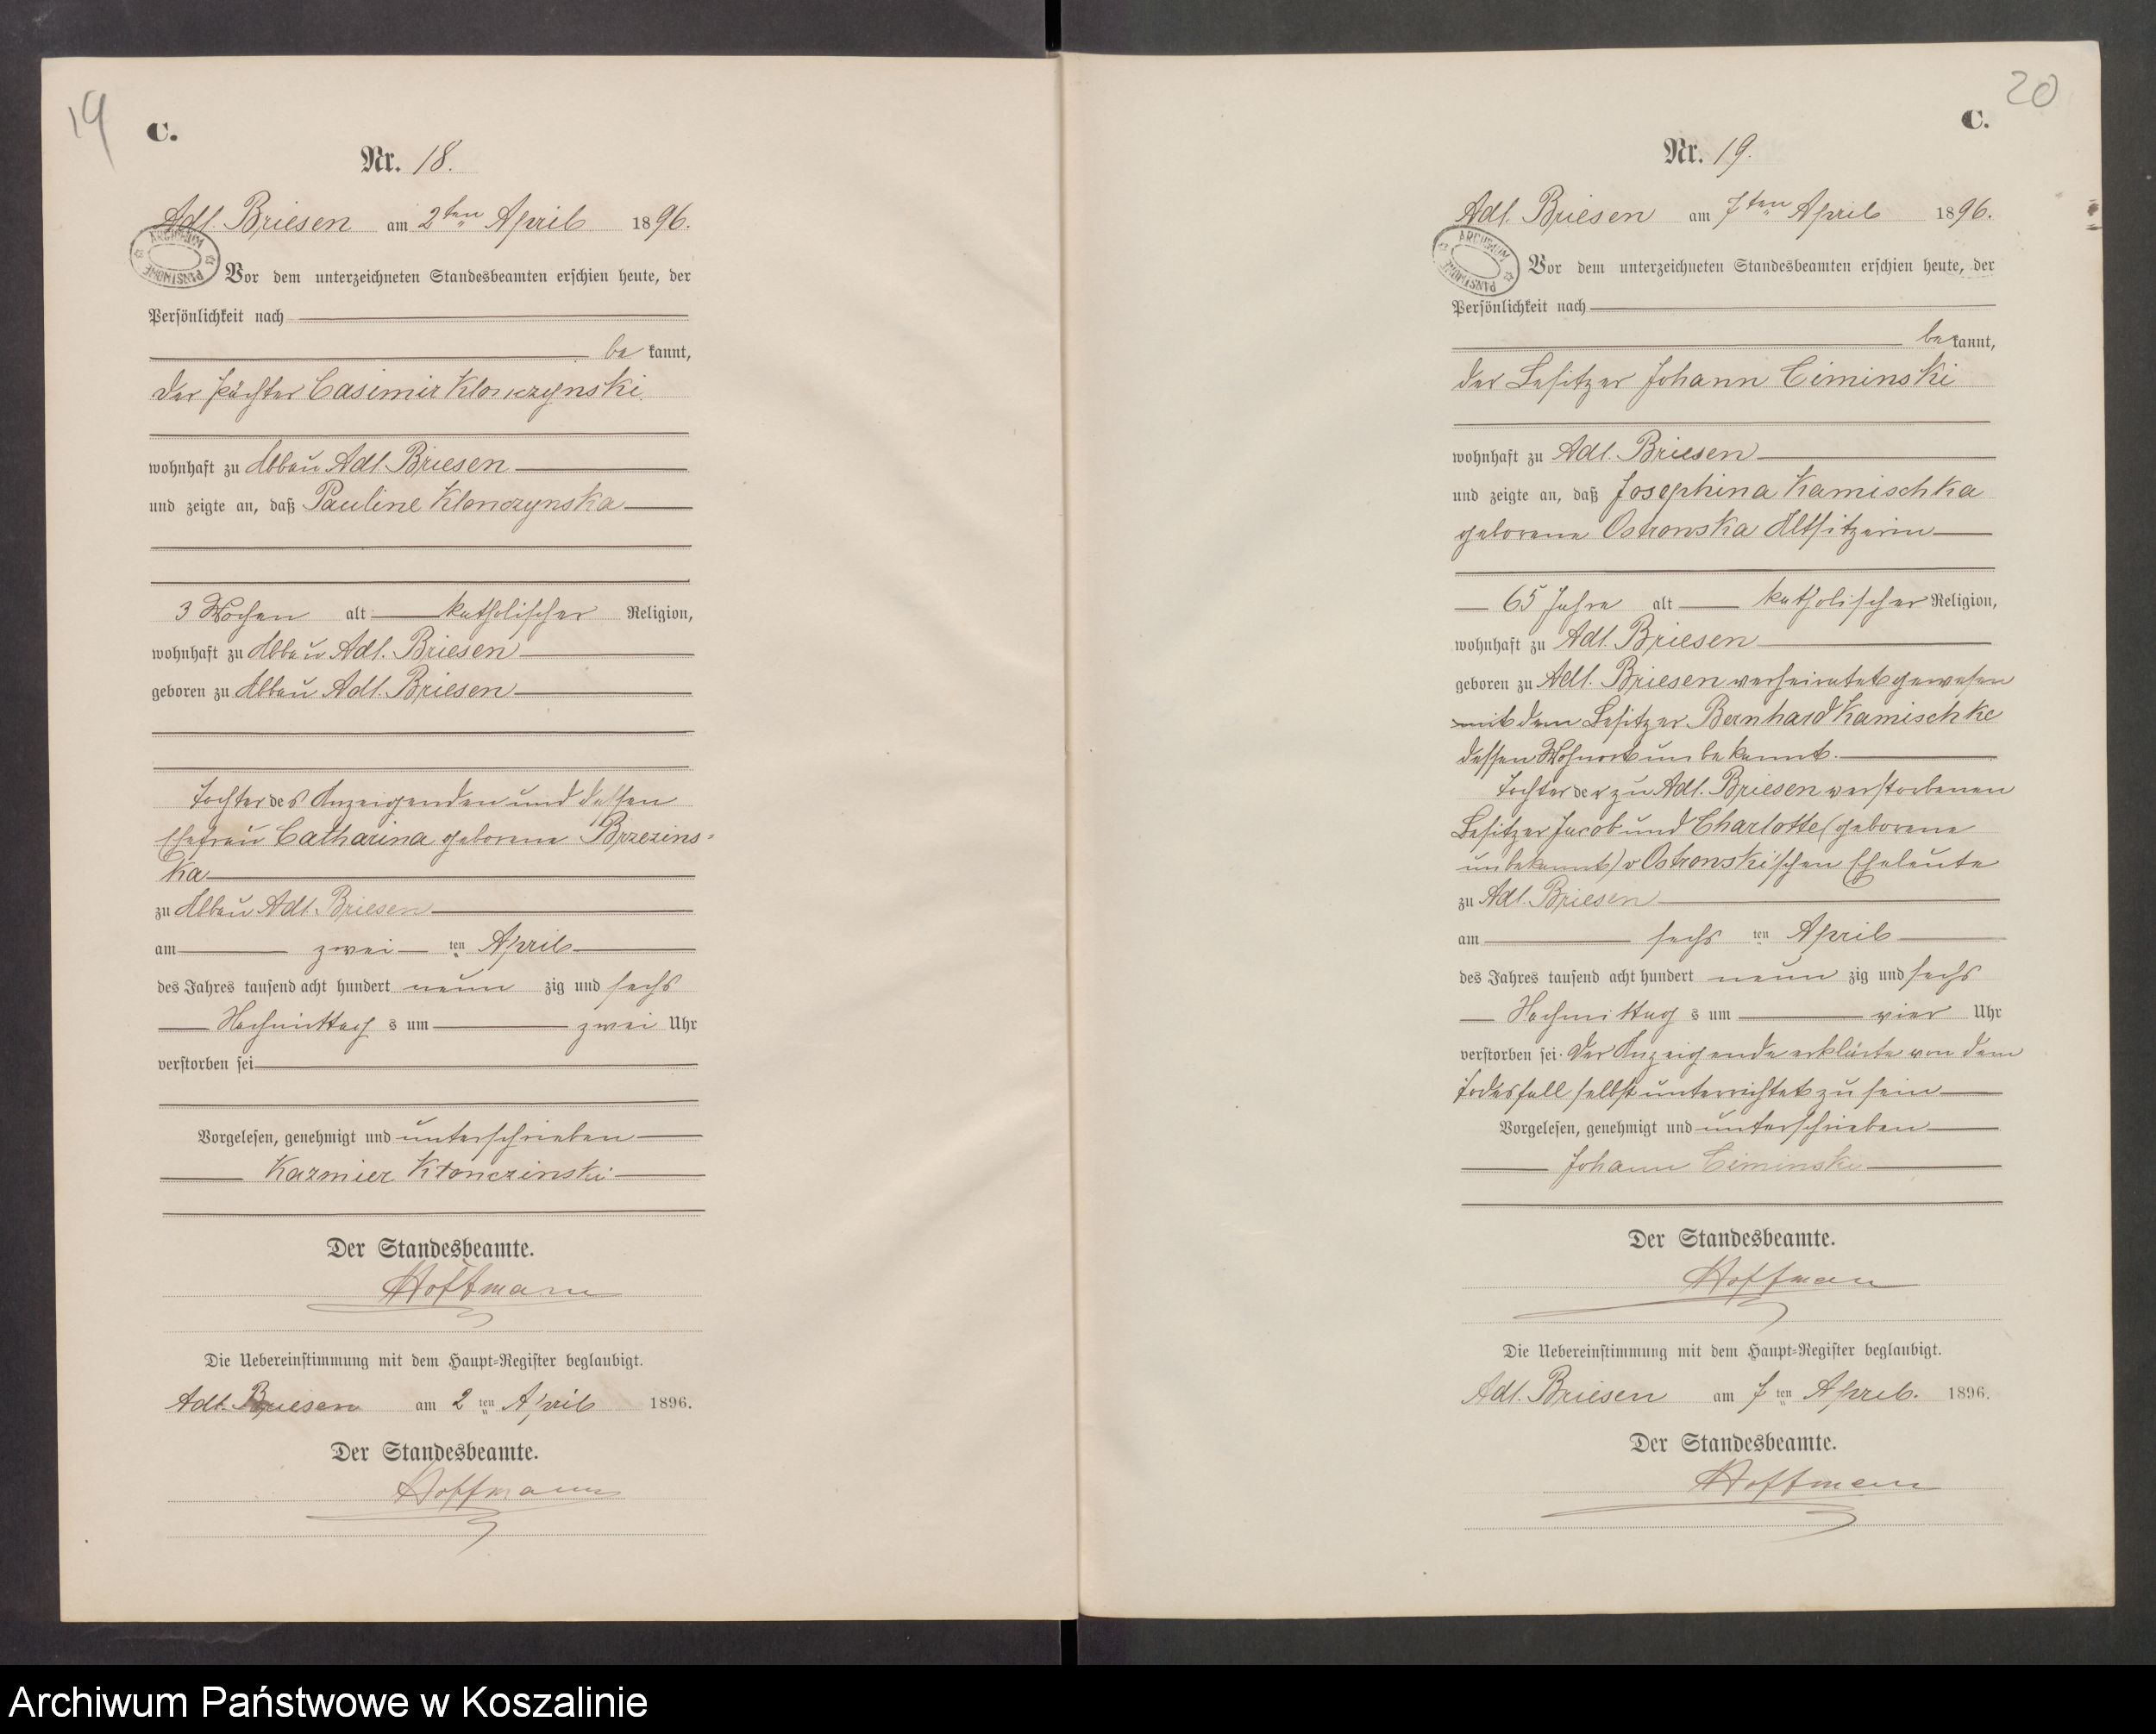 19
C.
Nr. 18.
Adl. Briesen am 2ten April 1896.
ARCHIWUM PAŃSTWOWE
Vor dem unterzeichneten Standesbeamten erschien heute, der
Persönlichkeit nach
be kannt,
der Pächter Casimir Klonczynski
wohnhaft zu Abbau Adl. Briesen
und zeigte an, daß Pauline Klonczynska
3 Wochen alt katholischer Religion,
wohnhaft zu Abbau Adl. Briesen
geboren zu Abbau Adl. Briesen
Tochter des Anzeigenden und dessen
Ehefrau Catharina geborene Brzezins-
ka
zu Abbau Adl. Briesen
am zwei ten April
des Jahres tausend acht hundert neun zig und sechs
Nachmittag s um zwei Uhr
verstorben sei
Vorgelesen, genehmigt und unterschrieben
Kazmier Kłonczinski
Der Standesbeamte.
Hoffmann
Die Uebereinstimmung mit dem Haupt-Register beglaubigt.
Adl. Briesen am 2 ten April 1896.
Der Standesbeamte.
Hoffmann
20
C.
Nr. 19.
Adl. Briesen am 7ten April 1896.
ARCHIWUM PAŃSTWOWE
Vor dem unterzeichneten Standesbeamten erschien heute, der
Persönlichkeit nach
be kannt,
der Besitzer Johann Ciminski
wohnhaft zu Adl. Briesen
und zeigte an, daß Josephina Kamischka
geborene Ostrowska Altsitzerin
65 Jahre alt katholischer Religion,
wohnhaft zu Adl. Briesen
geboren zu Adl. Briesen verheiratet gewesen
mit dem Besitzer Bernhard Kamischke
dessen Wohnort unbekannt.
Tochter der zu Adl. Briesen verstorbenen
Besitzer Jacob und Charlotte (geborene
unbekannt) v Ostrowskischen Eheleute
zu Adl. Briesen
am sechs ten April
des Jahres tausend acht hundert neun zig und sechs
Nachmittag s um vier Uhr
verstorben sei. Der Anzeigende erklärte von dem
Todesfall selbst unterrichtet zu sein
Vorgelesen, genehmigt und unterschrieben
Johann Ciminski
Der Standesbeamte.
Hoffmann
Die Uebereinstimmung mit dem Haupt-Register beglaubigt.
Adl. Briesen am 7 ten April. 1896.
Der Standesbeamte.
Hoffmann
Archiwum Państwowe w Koszalinie